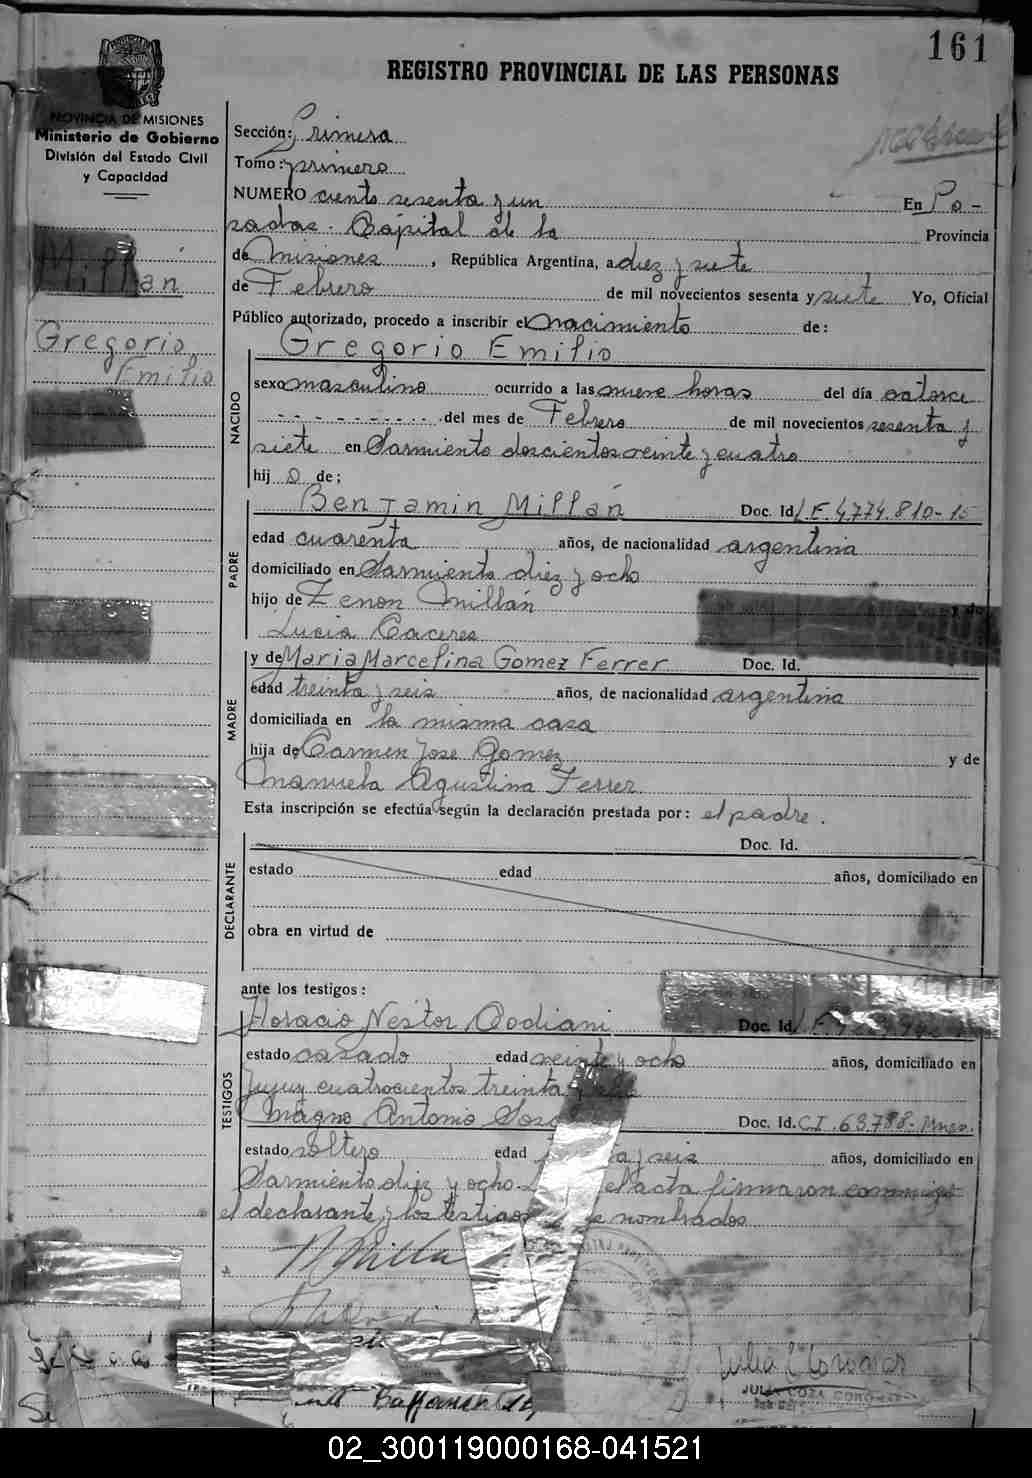 161
REGISTRO PROVINCIAL DE LAS PERSONAS
PROVINCIA DE MISIONES
Ministerio de Gobierno
División del Estado Civil
y Capacidad
Millán
Gregorio
Emilio
Sección: Primera
Tomo: primero
NUMERO ciento sesenta y un En Po-
sadas. Capital de la Provincia
de Misiones, República Argentina, a diez y siete
de Febrero de mil novecientos sesenta y siete Yo, Oficial
Público autorizado, procedo a inscribir el nacimiento de:
Gregorio Emilio
NACIDO
sexo masculino ocurrido a las nueve horas del día catorce
- - - - - - - - - del mes de Febrero de mil novecientos sesenta y
siete en Sarmiento doscientos veinte y cuatro
hij o de;
Benjamin Millán Doc. Id. L.E. 4774.810-
PADRE
edad cuarenta años, de nacionalidad argentina
domiciliado en Sarmiento diez y ocho
hijo de Zenon Millán y de
Lucia Caceres
y de Maria Marcelina Gomez Ferrer Doc. Id.
MADRE
edad treinta y seis años, de nacionalidad argentina
domiciliada en la misma casa
hija de Carmen Jose Gomez y de
Manuela Agustina Ferrer.
Esta inscripción se efectúa según la declaración prestada por: el padre.
Doc. Id.
DECLARANTE
estado edad años, domiciliado en
obra en virtud de
ante los testigos:
Horacio Nestor Codiani Doc. Id.
TESTIGOS
estado casado edad veinte y ocho años, domiciliado en
Jujuy cuatrocientos treinta y
Magno Antonio Doc. Id. C.I. 63.788- Mnes.
estado soltero edad y seis años, domiciliado en
Sarmiento diez y ocho. el acta firmaron conmigo
el declarante y los testigos nombrados
JULIA COZA CORONAS
02_300119000168-041521